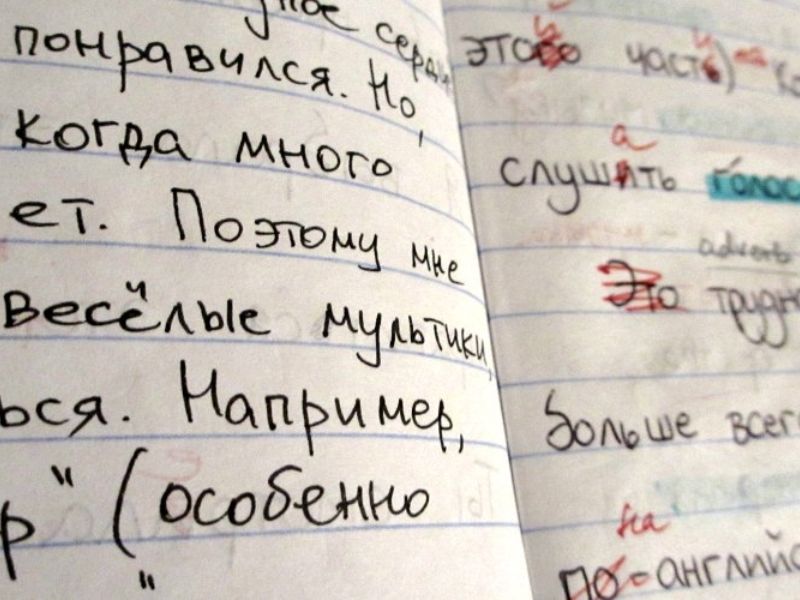 понравился. Но,
когда много
ет. Поэтому мне
весёлые мультики,
ься. Например,
р" (особенно
"
части
а
слушать голос
adverb
Это трудн
больше всег
на
по-английс